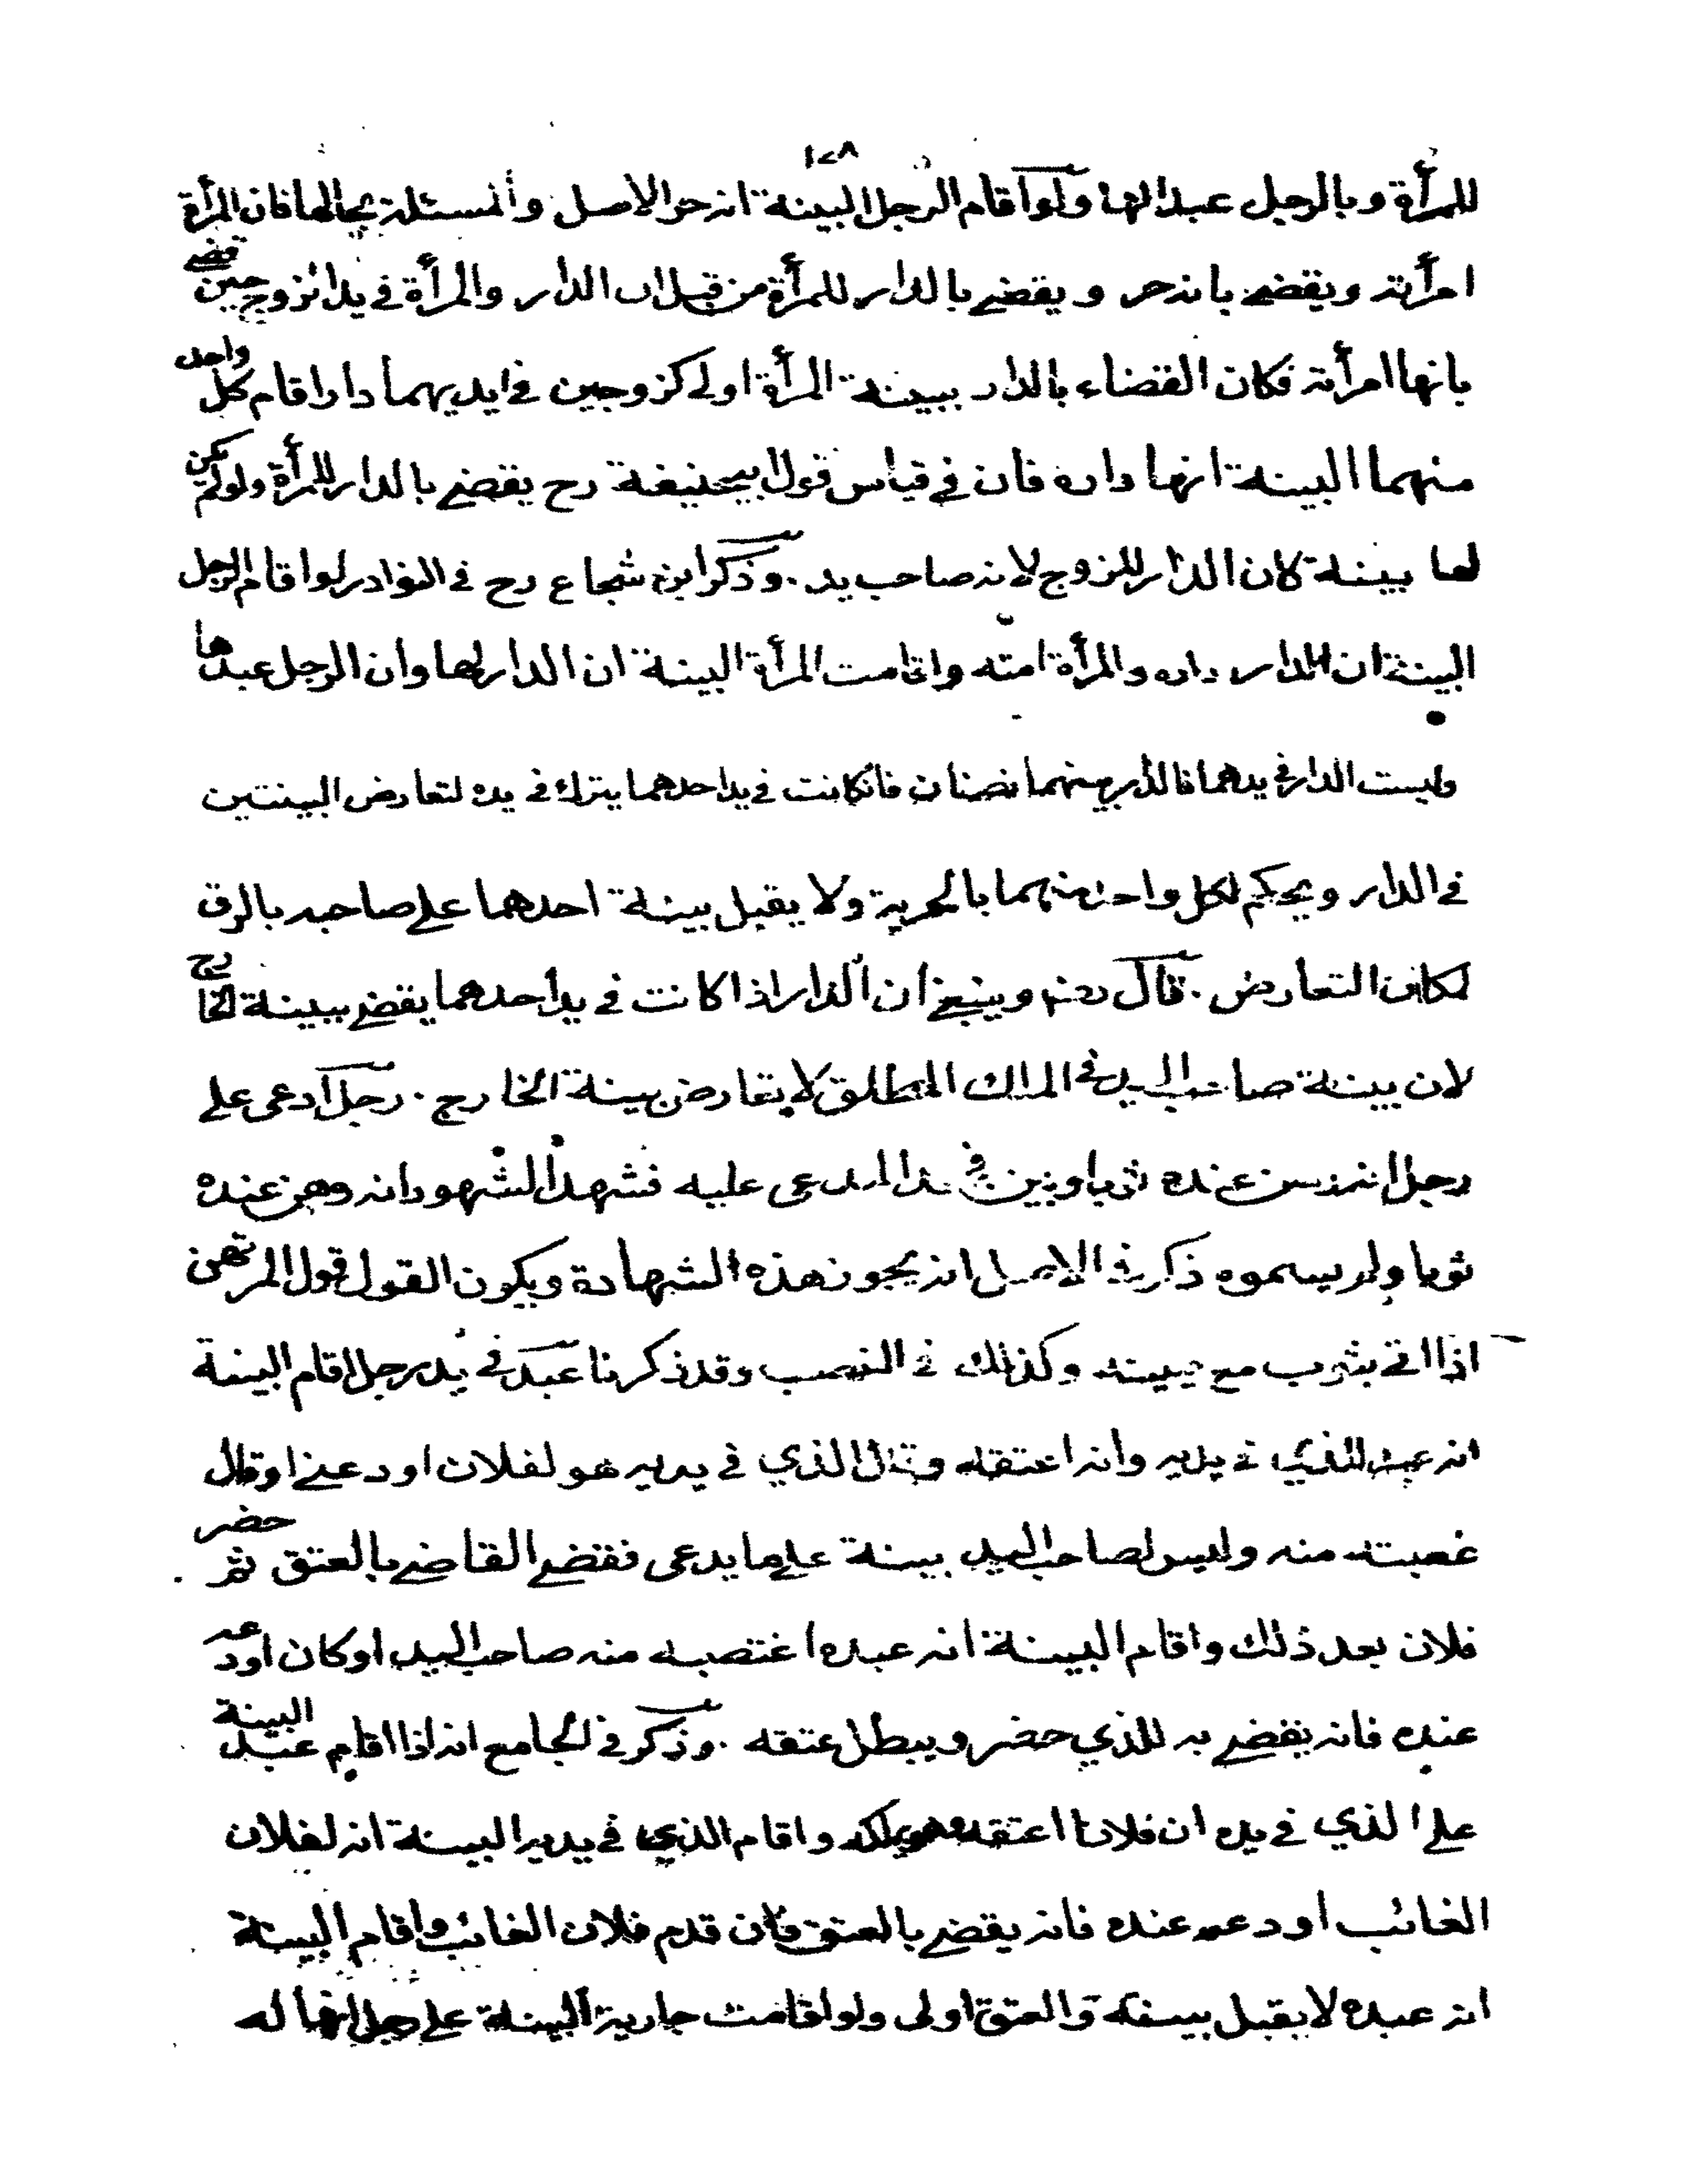 ١٢٨
للمرأة وبالرجل عبدا لها ولو اقام الرجل البينة انه حر الاصل والمسئلة بحالها فان المرأة
امرأته ويقضى بانه حر ويقضى بالدار للمرأة من قبل ان الدار والمرأة في يد الزوج حين قضى
بانها امرأته فكان القضاء بالدار ببينة المرأة اولى كزوجين في ايديهما دار اقام كل واحد
منهما البينة انها داره فان في قياس قول ابيحنيفة رح يقضى بالدار للمرأة ولو لم يكن
لها بينة كان الدار للزوج لانه صاحب يد . وذكر ابن شجاع رح في النوادر لو اقام الرجل
البينة ان الدار داره والمرأة امته واقامت المرأة البينة ان الدار لها وان الرجل عبدها
وليست الدار في يدهما فالدار بينهما نصفان فانكانت في يد احدهما يترك في يده لتعارض البينتين
في الدار ويحكم لكل واحد منهما بالحرية ولا يقبل بينة احدهما على صاحبه بالرق
لمكان التعارض . قال رضه وينبغي ان الدار اذا كانت في يد احدهما يقضى ببينة الخارج
لان بينة صاحب اليد في الملك المطلق لا تعارض بينة الخارج . رجل ادعى على
رجل انه رهن عنده ثوبا وبين في يد المدعى عليه فشهد الشهود انه رهن عنده
ثوبا ولم يسموه ذكر في الاصل انه يجوز هذه الشهادة ويكون القول قول المرتهن
اذا اتى بثوب مع يمينه وكذلك في الغصب وقد ذكرنا عبد في يد رجل اقام البينة
انه عبد الذي في يديه وانه اعتقله وقال الذي في يديه هو لفلان اودعني او قال
غصبته منه وليس لصاحب اليد بينة على ما يدعى فقضى القاضي بالعتق ثم حضر
فلان بعد ذلك واقام البينة انه عبده اغتصبه منه صاحب اليد او كان اودعه
عنده فانه يقضى به للذي حضر ويبطل عتقه . وذكر في الجامع انه اذا اقام عبد البينة
على الذي في يده ان فلانا اعتقه وهو يملكه واقام الذي في يديه البينة انه لفلان
الغائب اودعه عنده فانه يقضى بالعتق فان قدم فلان الغائب واقام البينة
انه عبده لا يقبل بينته والعتق اولى ولو اقامت جارية البينة على رجل انها له